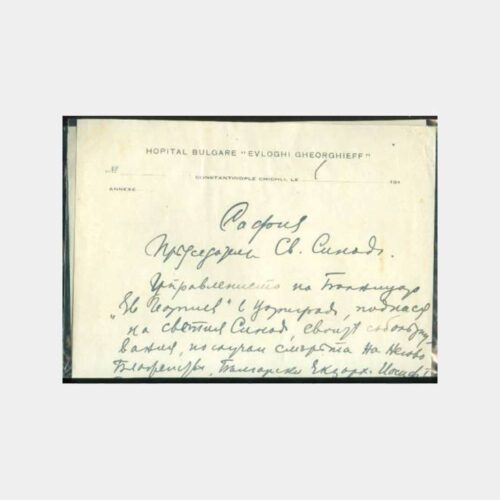 HOPITAL BULGARE "EVLOGHI GHEORGHIEFF"
№
CONSTANTINOPLE CHICHLI, LE 191
ANNEXE
София
Св. Синод.
Управлението на Болницата
"Ев Георгиев" в Цариград, поднася
на светия Синод, своите соболезну
вания, по случай смъртта на Негово
Блаженство, Български Екзарх Йосиф